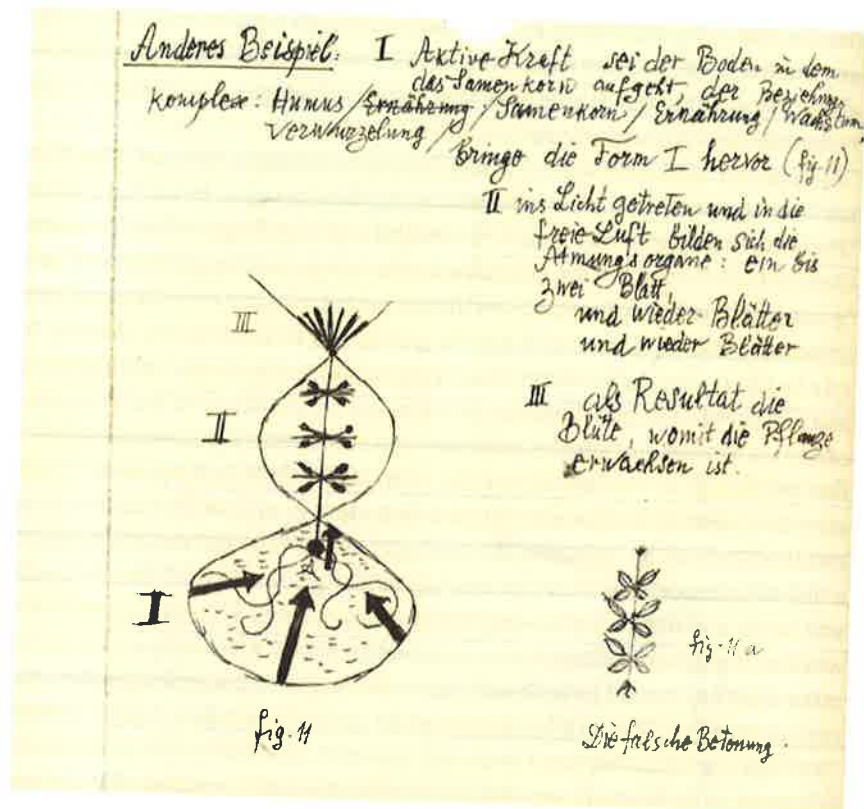 Anderes Beispiel: I Aktive Kraft sei der Boden in dem
das Samenkorn aufgeht, der Beziehung
komplex: Humus / Ernährung / Samenkorn / Ernährung / Wachstum
Verwurzelung /
Bringe die Form I hervor (fig. 11)
II ins Licht getreten und in die
freie Luft bilden sich die
Atmungsorgane: ein bis
zwei Blatt,
und wieder Blätter
und wieder Blätter
III als Resultat die
Blüte, womit die Pflanze
erwachsen ist.
III
II
I
fig. 11
fig. 11 a
Die falsche Betonung.